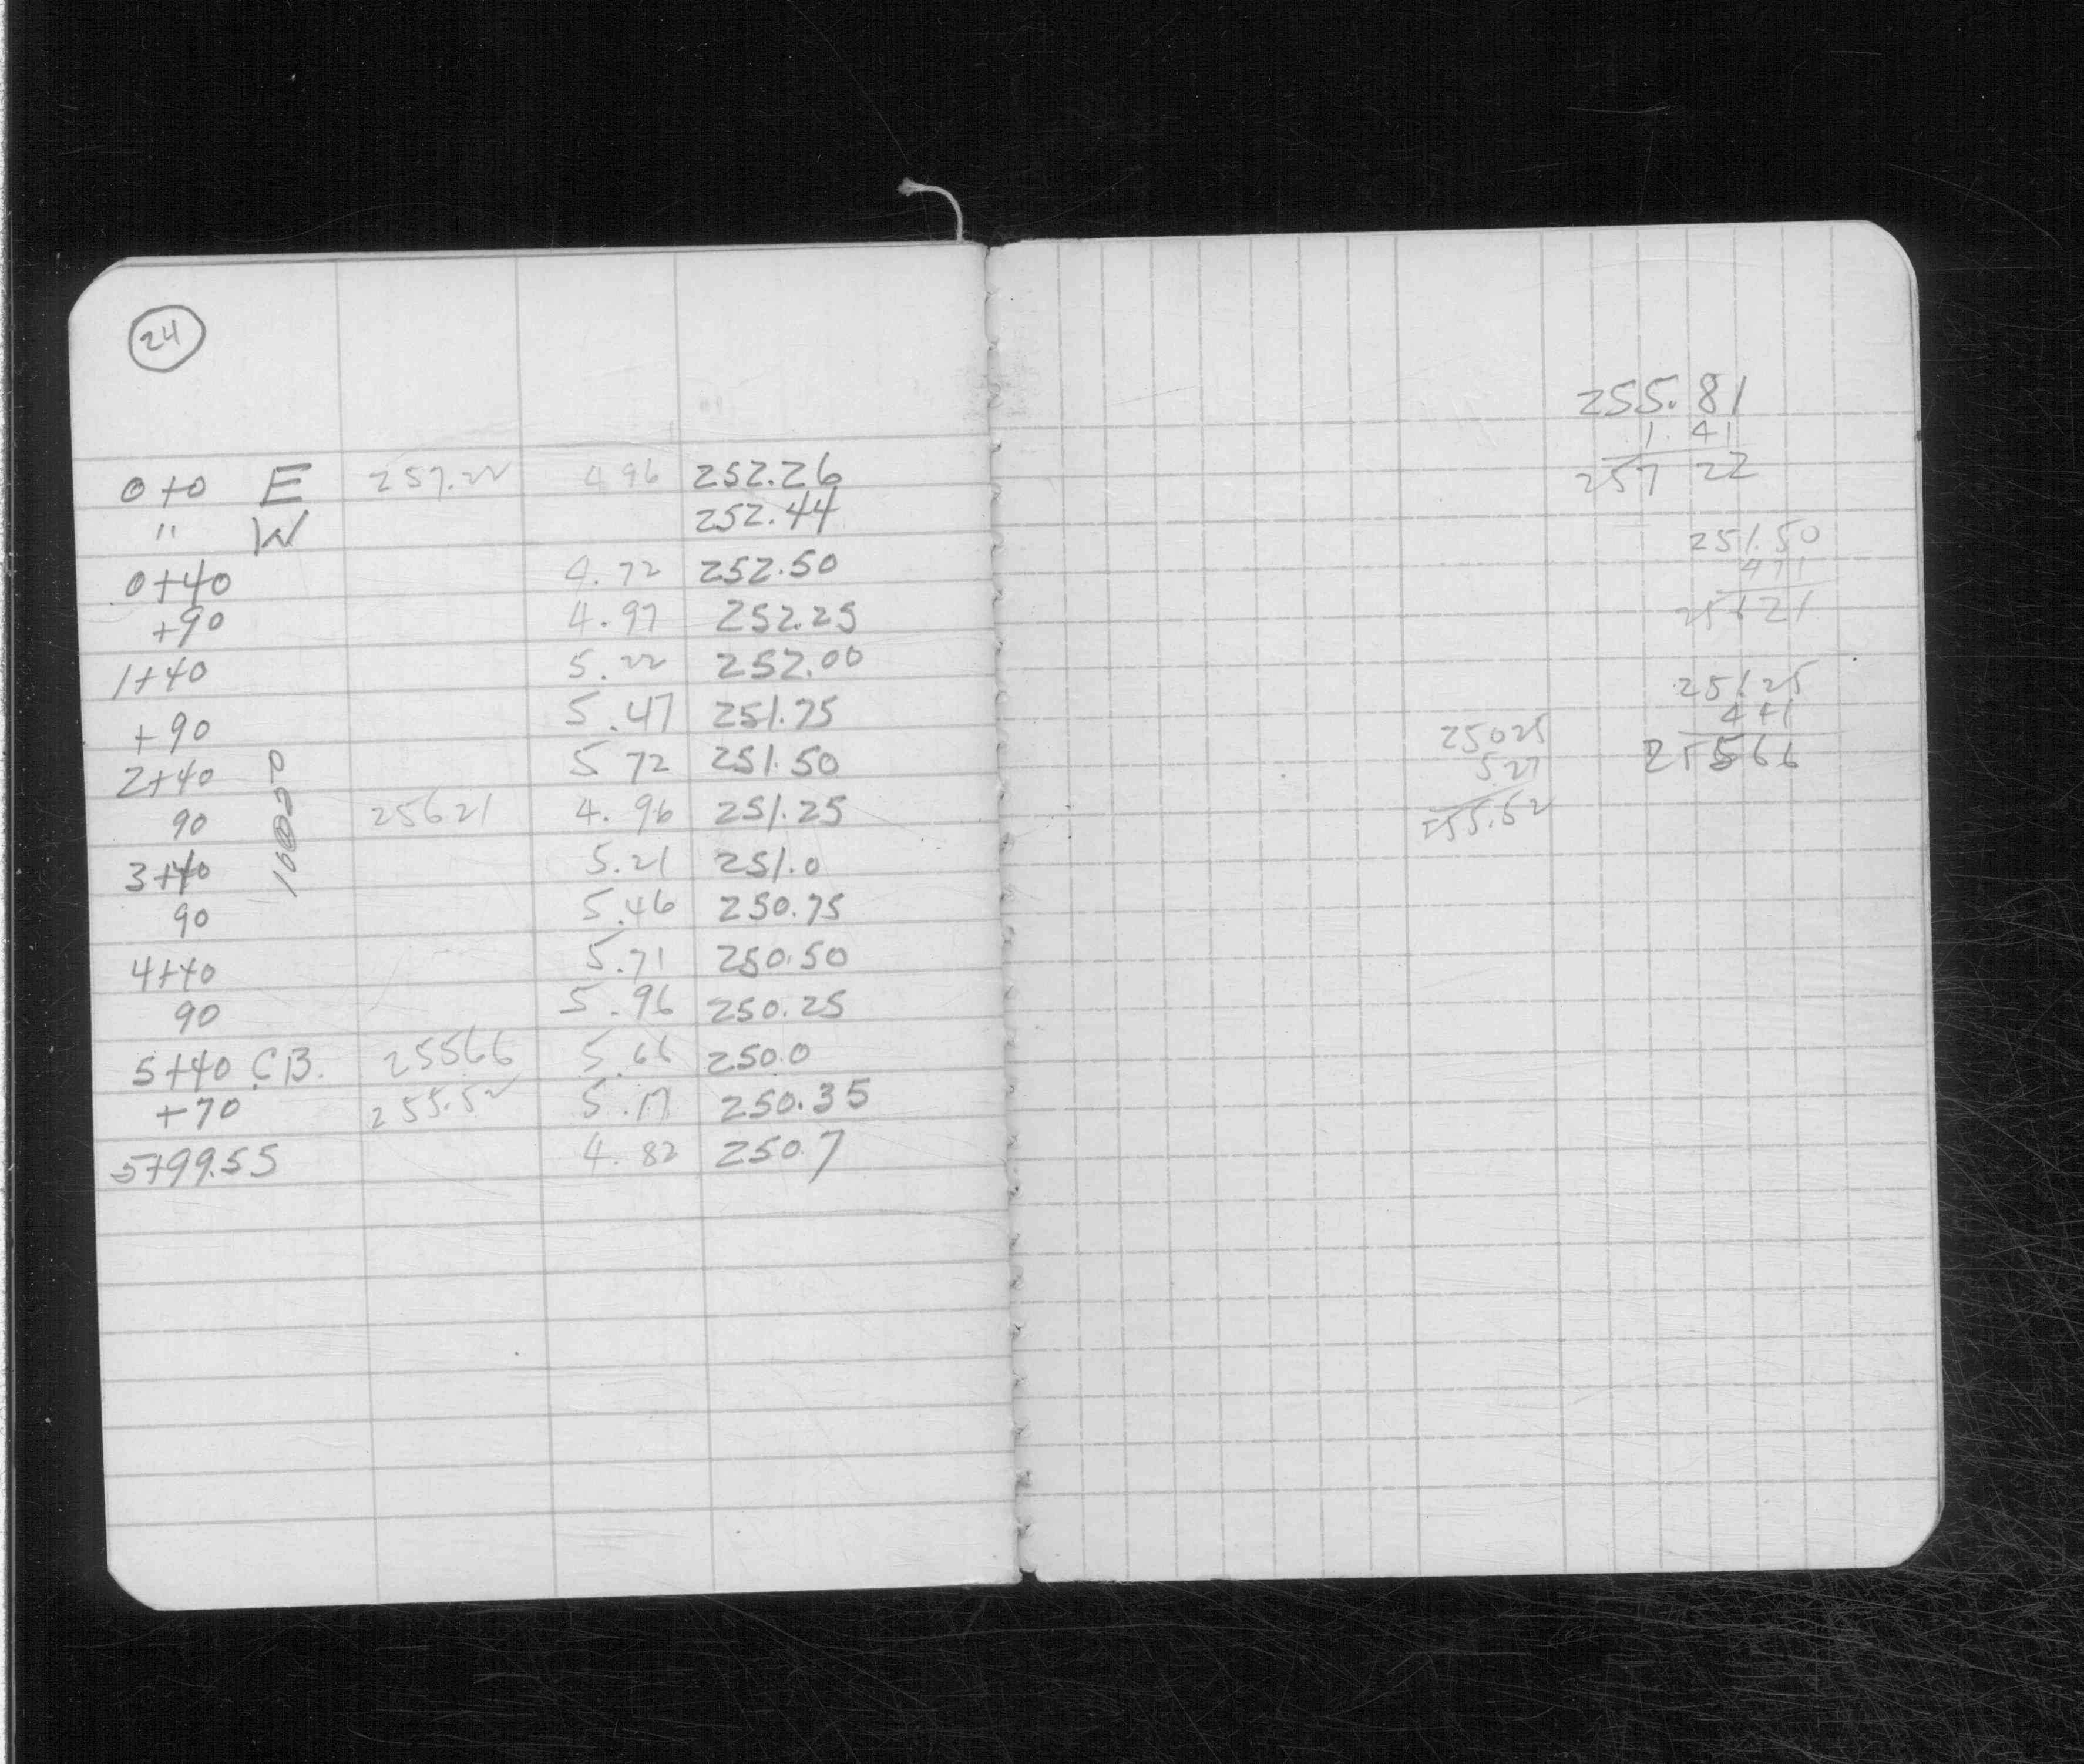 24
0+0 E 257.22 4 96 252.26
" W 252.44
0+40 4.72 252.50
+90 4.97 252.25
1+40 5.22 252.00
+90 5.47 251.75
2+40 5 72 251.50
90 25621 4.96 251.25
3+40 5.21 251.0
90 5.46 250.75
4+40 5.71 250.50
90 5.96 250.25
5+40 C.B. 25566 5.66 250.0
+70 255.52 5.17 250.35
5+99.55 4.82 250.7
255.81
1.41
257 22
251.50
471
25621
251.25
441
25566
25025
5.27
255.52